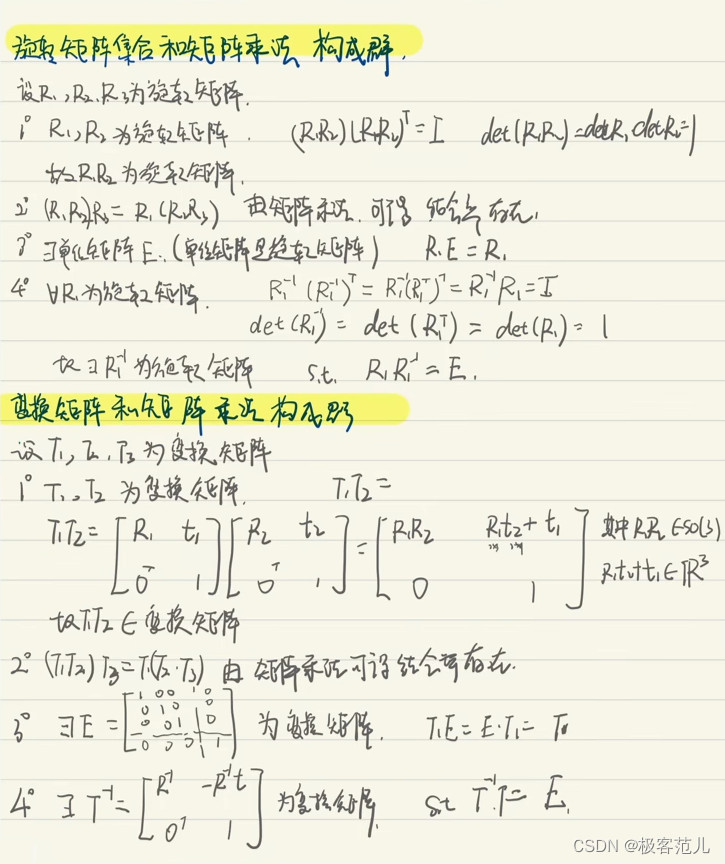 旋转矩阵集合和矩阵乘法 构成群.
设R₁,R₂,R₃为旋转矩阵.
1° R₁,R₂为旋转矩阵. (R₁R₂)(R₁R₂)ᵀ=I det(R₁R₂)=detR₁detR₂=1
故R₁R₂为旋转矩阵.
2° (R₁R₂)R₃=R₁(R₂R₃) 由矩阵乘法,可得 结合律存在.
3° ∃单位矩阵E.(单位矩阵是旋转矩阵) R₁E=R₁
4° ∀R₁为旋转矩阵. R₁⁻¹(R₁⁻¹)ᵀ=R₁⁻¹(R₁ᵀ)ᵀ=R₁⁻¹R₁=I
det(R₁⁻¹)=det(R₁ᵀ)=det(R₁)=1
故∃R₁⁻¹为旋转矩阵 s.t. R₁R₁⁻¹=E.
变换矩阵和矩阵乘法构成群
设T₁,T₂,T₃为变换矩阵
1° T₁,T₂为变换矩阵. T₁T₂=
T₁T₂=[R₁ t₁; 0ᵀ 1][R₂ t₂; 0ᵀ 1]=[R₁R₂ R₁t₂+t₁; 0 1] 其中R₁R₂∈SO(3)
R₁t₂+t₁∈ℝ³
故T₁T₂∈变换矩阵
2° (T₁T₂)T₃=T₁(T₂·T₃) 由矩阵乘法可得结合律存在.
3° ∃E=[1 0 0 0; 0 1 0 0; 0 0 1 0; 0 0 0 1]为变换矩阵. T₁E=E·T₁=T₁
4° ∃T⁻¹=[R⁻¹ -R⁻¹t; 0ᵀ 1]为变换矩阵. s.t T⁻¹T=E.
CSDN @极客范儿